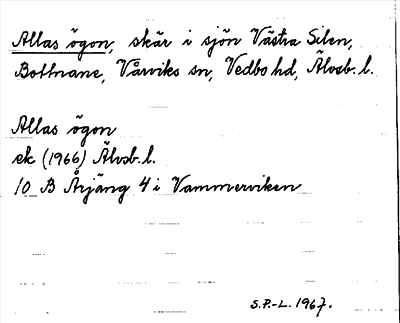 Allas ögon, skär i sjön Västra Silen,
Bottnane, Vårviks sn, Vedbo hd, Älvsb. l.
Allas ögon
ek (1966) Älvsb. l.
10 B Årjäng 4 i Vammerviken
S.P.-L. 1967.